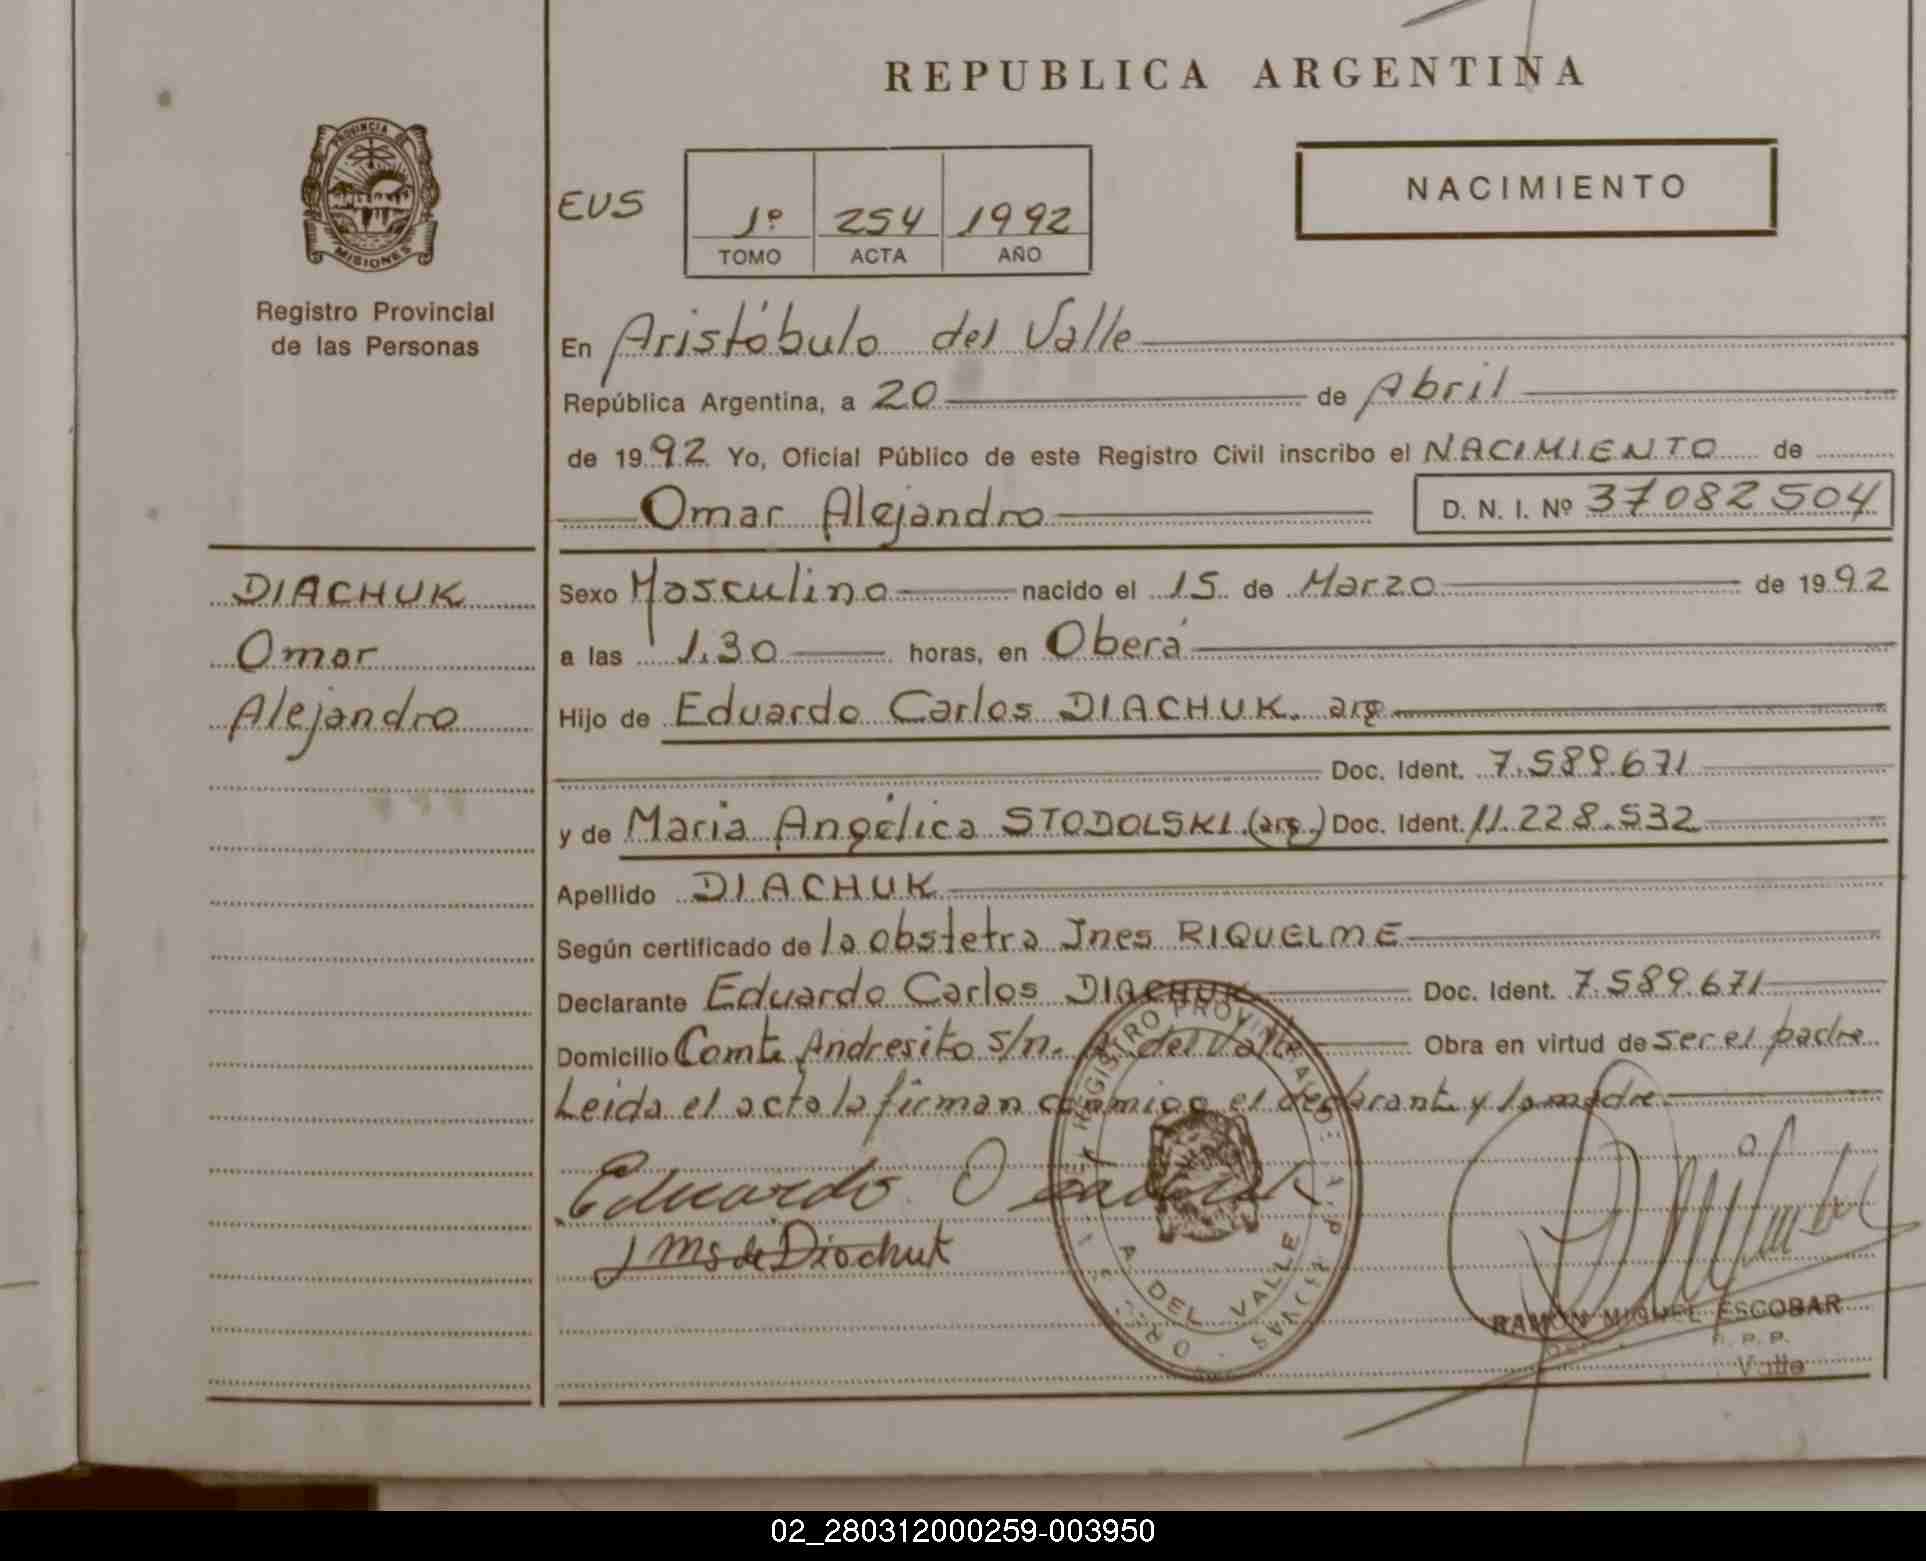 REPUBLICA ARGENTINA
PROVINCIA DE
MISIONES
Registro Provincial
de las Personas
NACIMIENTO
EUS
1º 254 1992
TOMO ACTA AÑO
En Aristóbulo del Valle
República Argentina, a 20 de Abril
de 1992 Yo, Oficial Público de este Registro Civil inscribo el NACIMIENTO de
Omar Alejandro D. N. I. Nº 37082504
DIACHUK
Omar
Alejandro
Sexo Masculino nacido el 15 de Marzo de 1992
a las 1.30 horas, en Oberá
Hijo de Eduardo Carlos DIACHUK. arg
Doc. Ident. 7.589.671
y de Maria Angélica STODOLSKI (arg.) Doc. Ident. 11.228.532
Apellido DIACHUK
Según certificado de la obstetra Ines RIQUELME
Declarante Eduardo Carlos DIACHUK Doc. Ident. 7.589.671
Domicilio Comte Andresito s/n. A. del Valle Obra en virtud de ser el padre
Leida el acta la firman conmigo el declarante y la madre.
Eduardo
de Diachuk
REGISTRO PROVINCIAL DE
A. DEL VALLE
RAMON MIGUEL ESCOBAR
R. P. P.
Valle
02_280312000259-003950